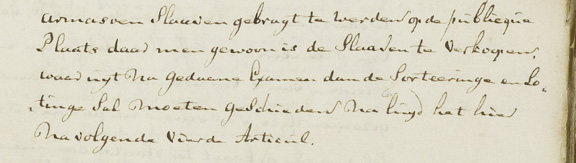 armasoen Slaaven gebragt te werden op de publieque
Plaats daar men gewoon is de Slaaven te verkopen,
waar uyt na gedaene Examen dan de Sorteeringe en Lo-
tinge Sal moeten geschieden na luyd het hier
na volgende Vierde Articul.